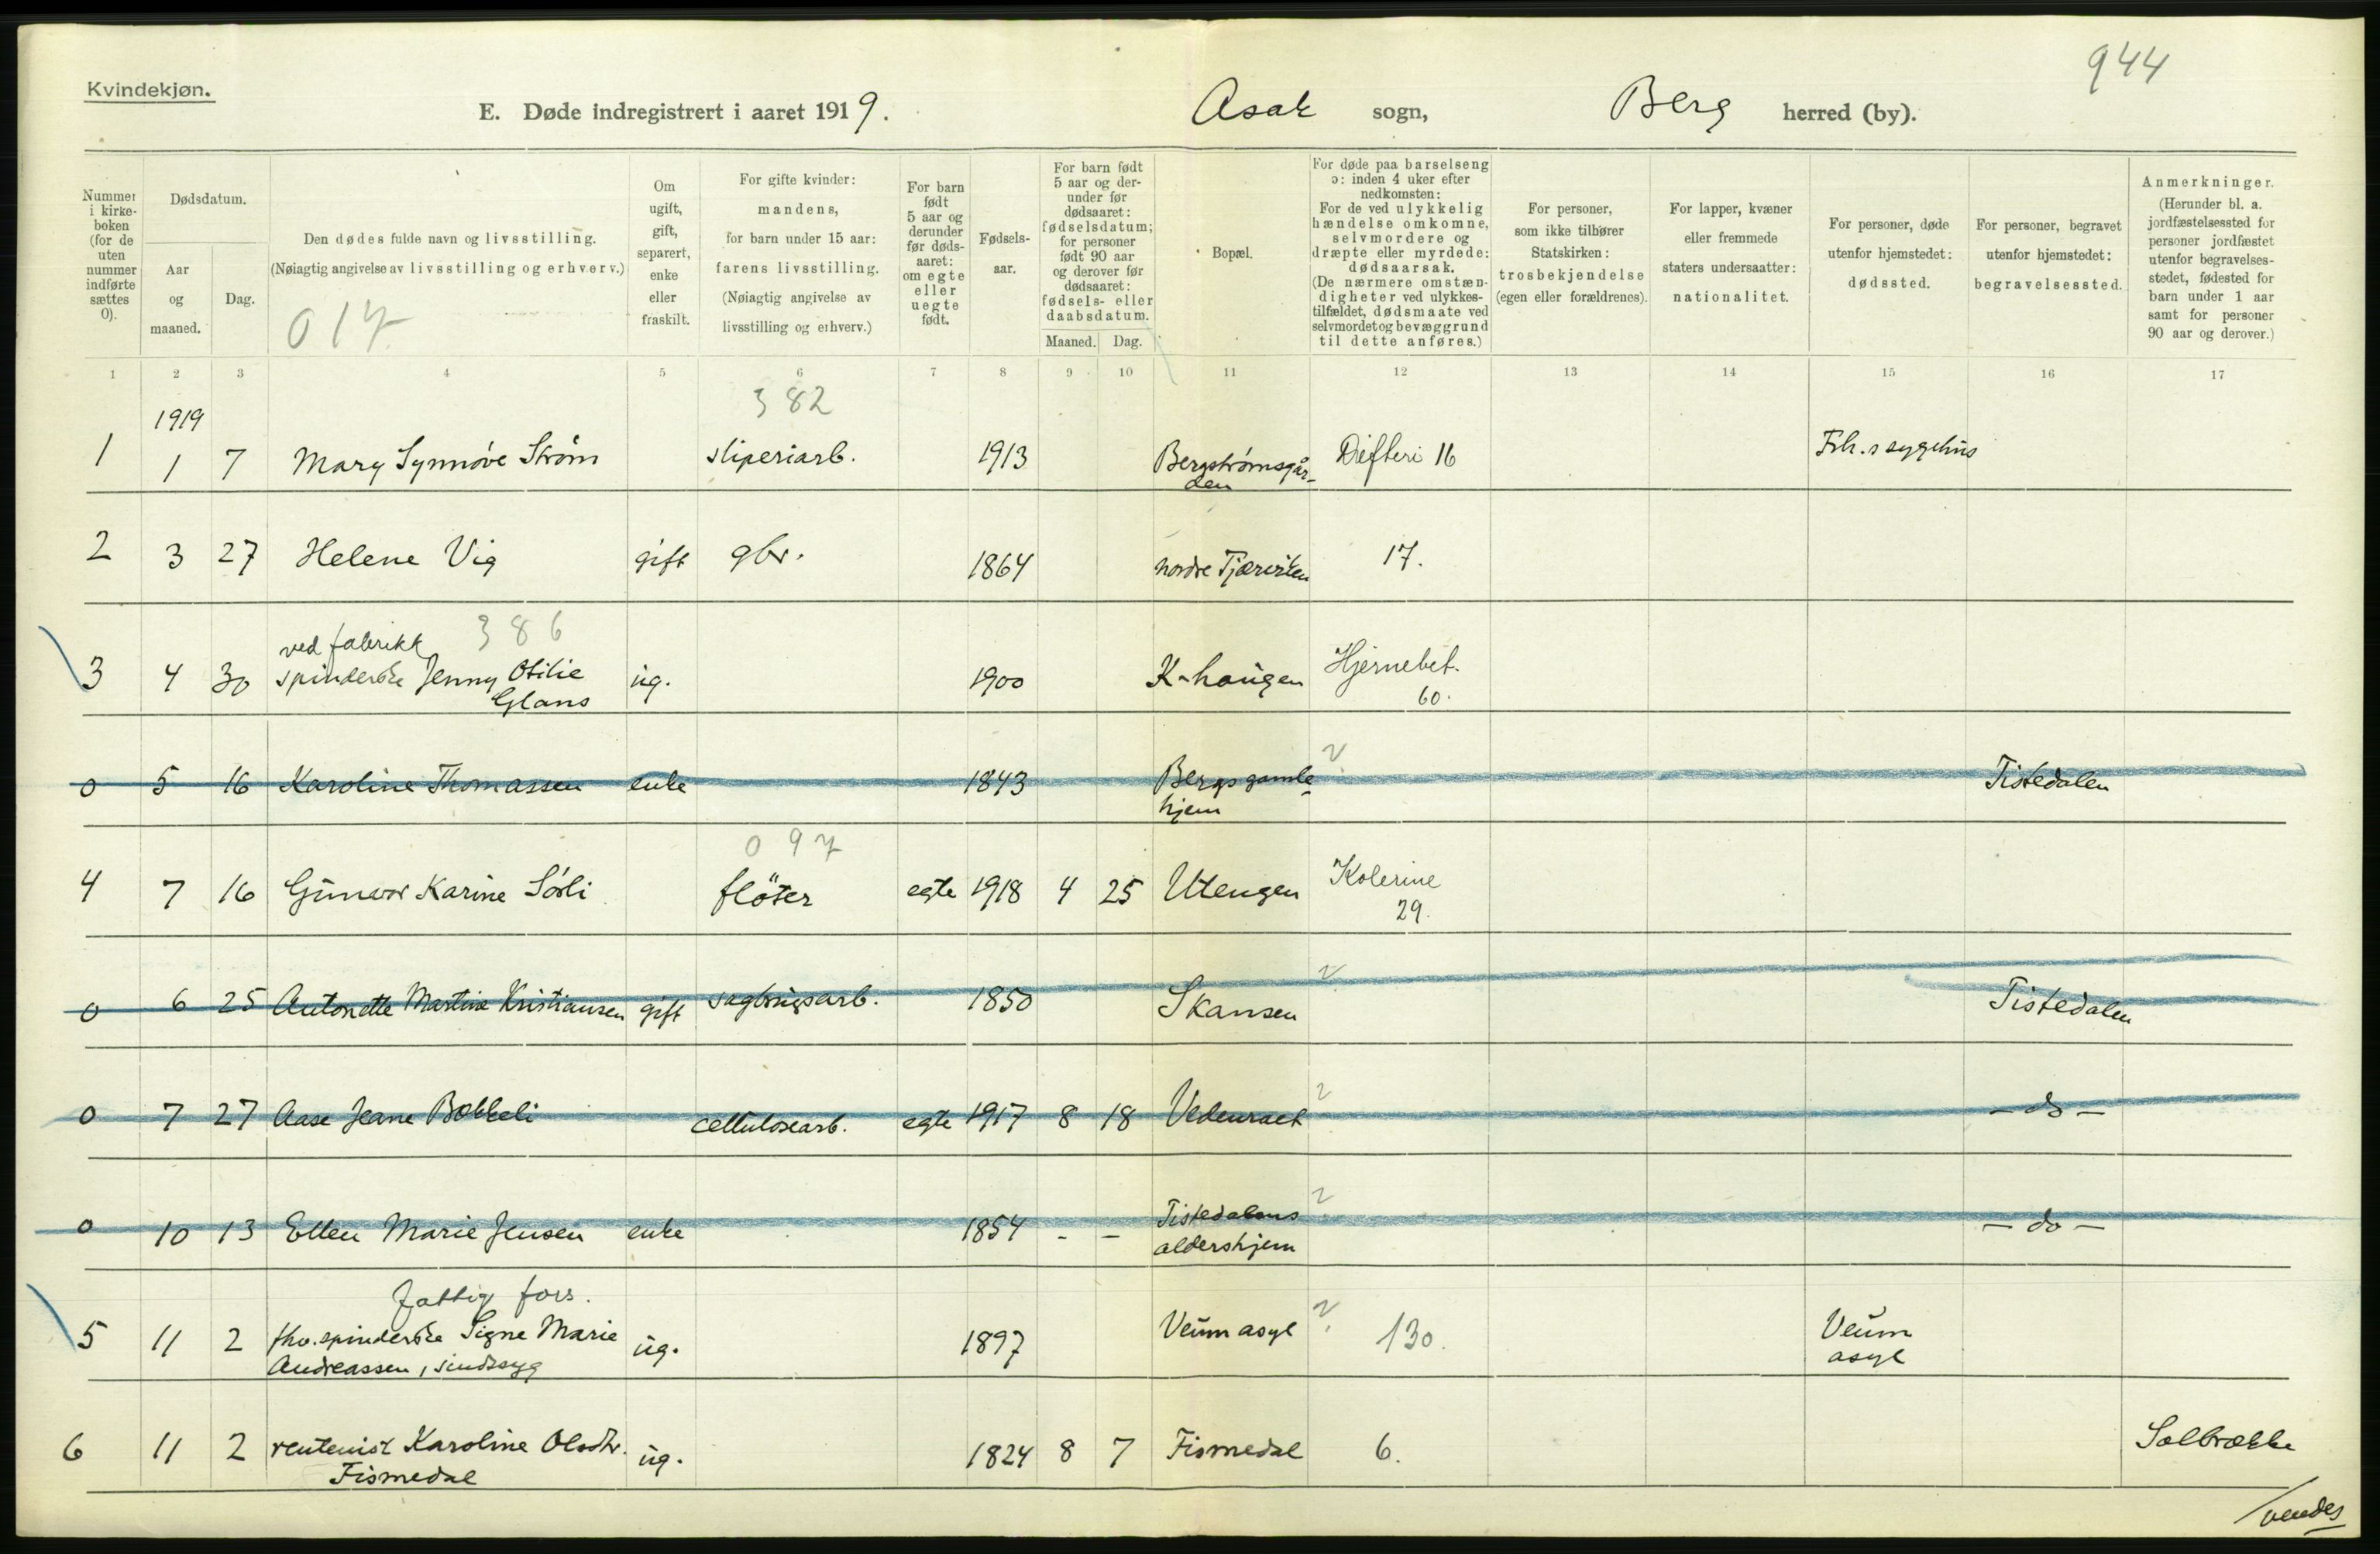 944
Kvindekjøn.
E. Døde indregistrert i aaret 1919.
Asak sogn,
Berg herred (by).
Nummer i kirke-boken (for de uten nummer indførte sættes 0).
Dødsdatum.
Aar og maaned.
Dag.
Den dødes fulde navn og livsstilling.
(Nøiagtig angivelse av livsstilling og erhverv.)
017
Om ugift, gift, separert, enke eller fraskilt.
For gifte kvinder:
mandens,
for barn under 15 aar:
farens livsstilling.
(Nøiagtig angivelse av
livsstilling og erhverv.)
For barn født 5 aar og derunder før døds-aaret: om egte eller uegte født.
Fødsels-aar.
For barn født 5 aar og der-under før dødsaaret: fødselsdatum; for personer født 90 aar og derover før dødsaaret: fødsels- eller daabsdatum.
Maaned. Dag.
Bopæl.
For døde paa barselseng
ɔ: inden 4 uker efter
nedkomsten:
For de ved ulykkelig
hændelse omkomne,
selvmordere og
dræpte eller myrdede:
dødsaarsak.
(De nærmere omstæn-
digheter ved ulykkes-
tilfældet, dødsmaate ved
selvmordet og bevæggrund
til dette anføres.)
For personer,
som ikke tilhører
Statskirken:
trosbekjendelse
(egen eller forældrenes).
For lapper, kvæner
eller fremmede
staters undersaatter:
nationalitet.
For personer, døde
utenfor hjemstedet:
dødssted.
For personer, begravet
utenfor hjemstedet:
begravelsessted.
Anmerkninger.
(Herunder bl. a.
jordfæstelsessted for
personer jordfæstet
utenfor begravelses-
stedet, fødested for
barn under 1 aar
samt for personer
90 aar og derover.)
1 2 3 4 5 6 7 8 9 10 11 12 13 14 15 16 17
1919
382
1 1 7 Mary Synnøve Strøm sliperiarb. 1913 Bergstrømsgår- Difteri 16 Frh.s sygehus
den
2 3 27 Helene Vig gift gbr. 1864 nordre 17.
ved fabrikk 386
3 4 30 spinderske Jenny Otilie ug. 1900 K-haugen Hjernebet.
Glans 60.
0 5 16 Karoline Thomassen enke 1843 Bergs gamle- ? Tistedalen
hjem
097
4 7 16 Gunvor Karine Sørli fløter egte 1918 4 25 Utengen Kolerine
29.
0 6 25 Antonette Martine Kristiansen gift sagbrugsarb. 1850 Skansen ? Tistedalen
0 7 27 Aase Jeane Bækkeli cellulosearb. egte 1917 8 18 ? - do -
0 10 13 Ellen Marie Jensen enke 1854 - - Tistedalens ? - do -
aldershjem
fattig fors.
5 11 2 fhv. spinderske Signe Marie ug. 1897 Veum asyl ? 130. Veum
Andreassen, sindssyg asyl
6 11 2 rentenist Karoline Olsdtr. ug. 1824 8 7 Fismedal 6. Solbrække
Fismedal
vendes